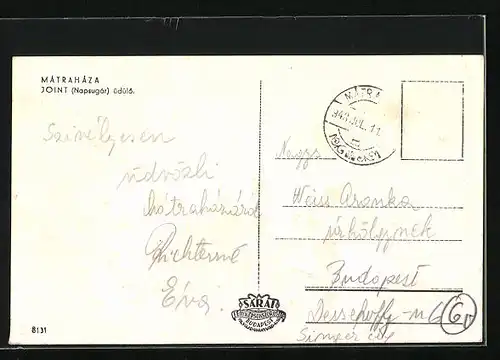 MÁTRAHÁZA
JOINT (Napsugár) üdülő.
Szivélyesen
üdvözli
Mátraházáról
Richterné
Éva
MÁTRA
Nagys.
Weiss Aranka
úrhölgynek
Budapest
Dessewffy-u
SARAI
BUDAPEST
8131